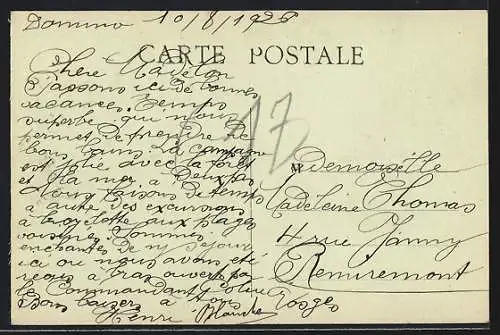 Domino 10/8/1926
CARTE POSTALE
Chère Madelon
Passons ici de bonnes
vacances. Temps
superbe qui nous
permet de prendre de
bons bains. La campagne
est jolie avec la forêt
et la mer à deux pas
Nous faisons de temps
à autre des excursions
à bicyclette aux plages
voisines. Sommes
enchantés de ns séjour
ici où nous avons été
reçus à bras ouverts par
le Commandant
Bons baisers à tous
Henri Blanche
17
Mademoiselle
Madeleine Thomas
4 rue Janny
Remiremont
Vosges